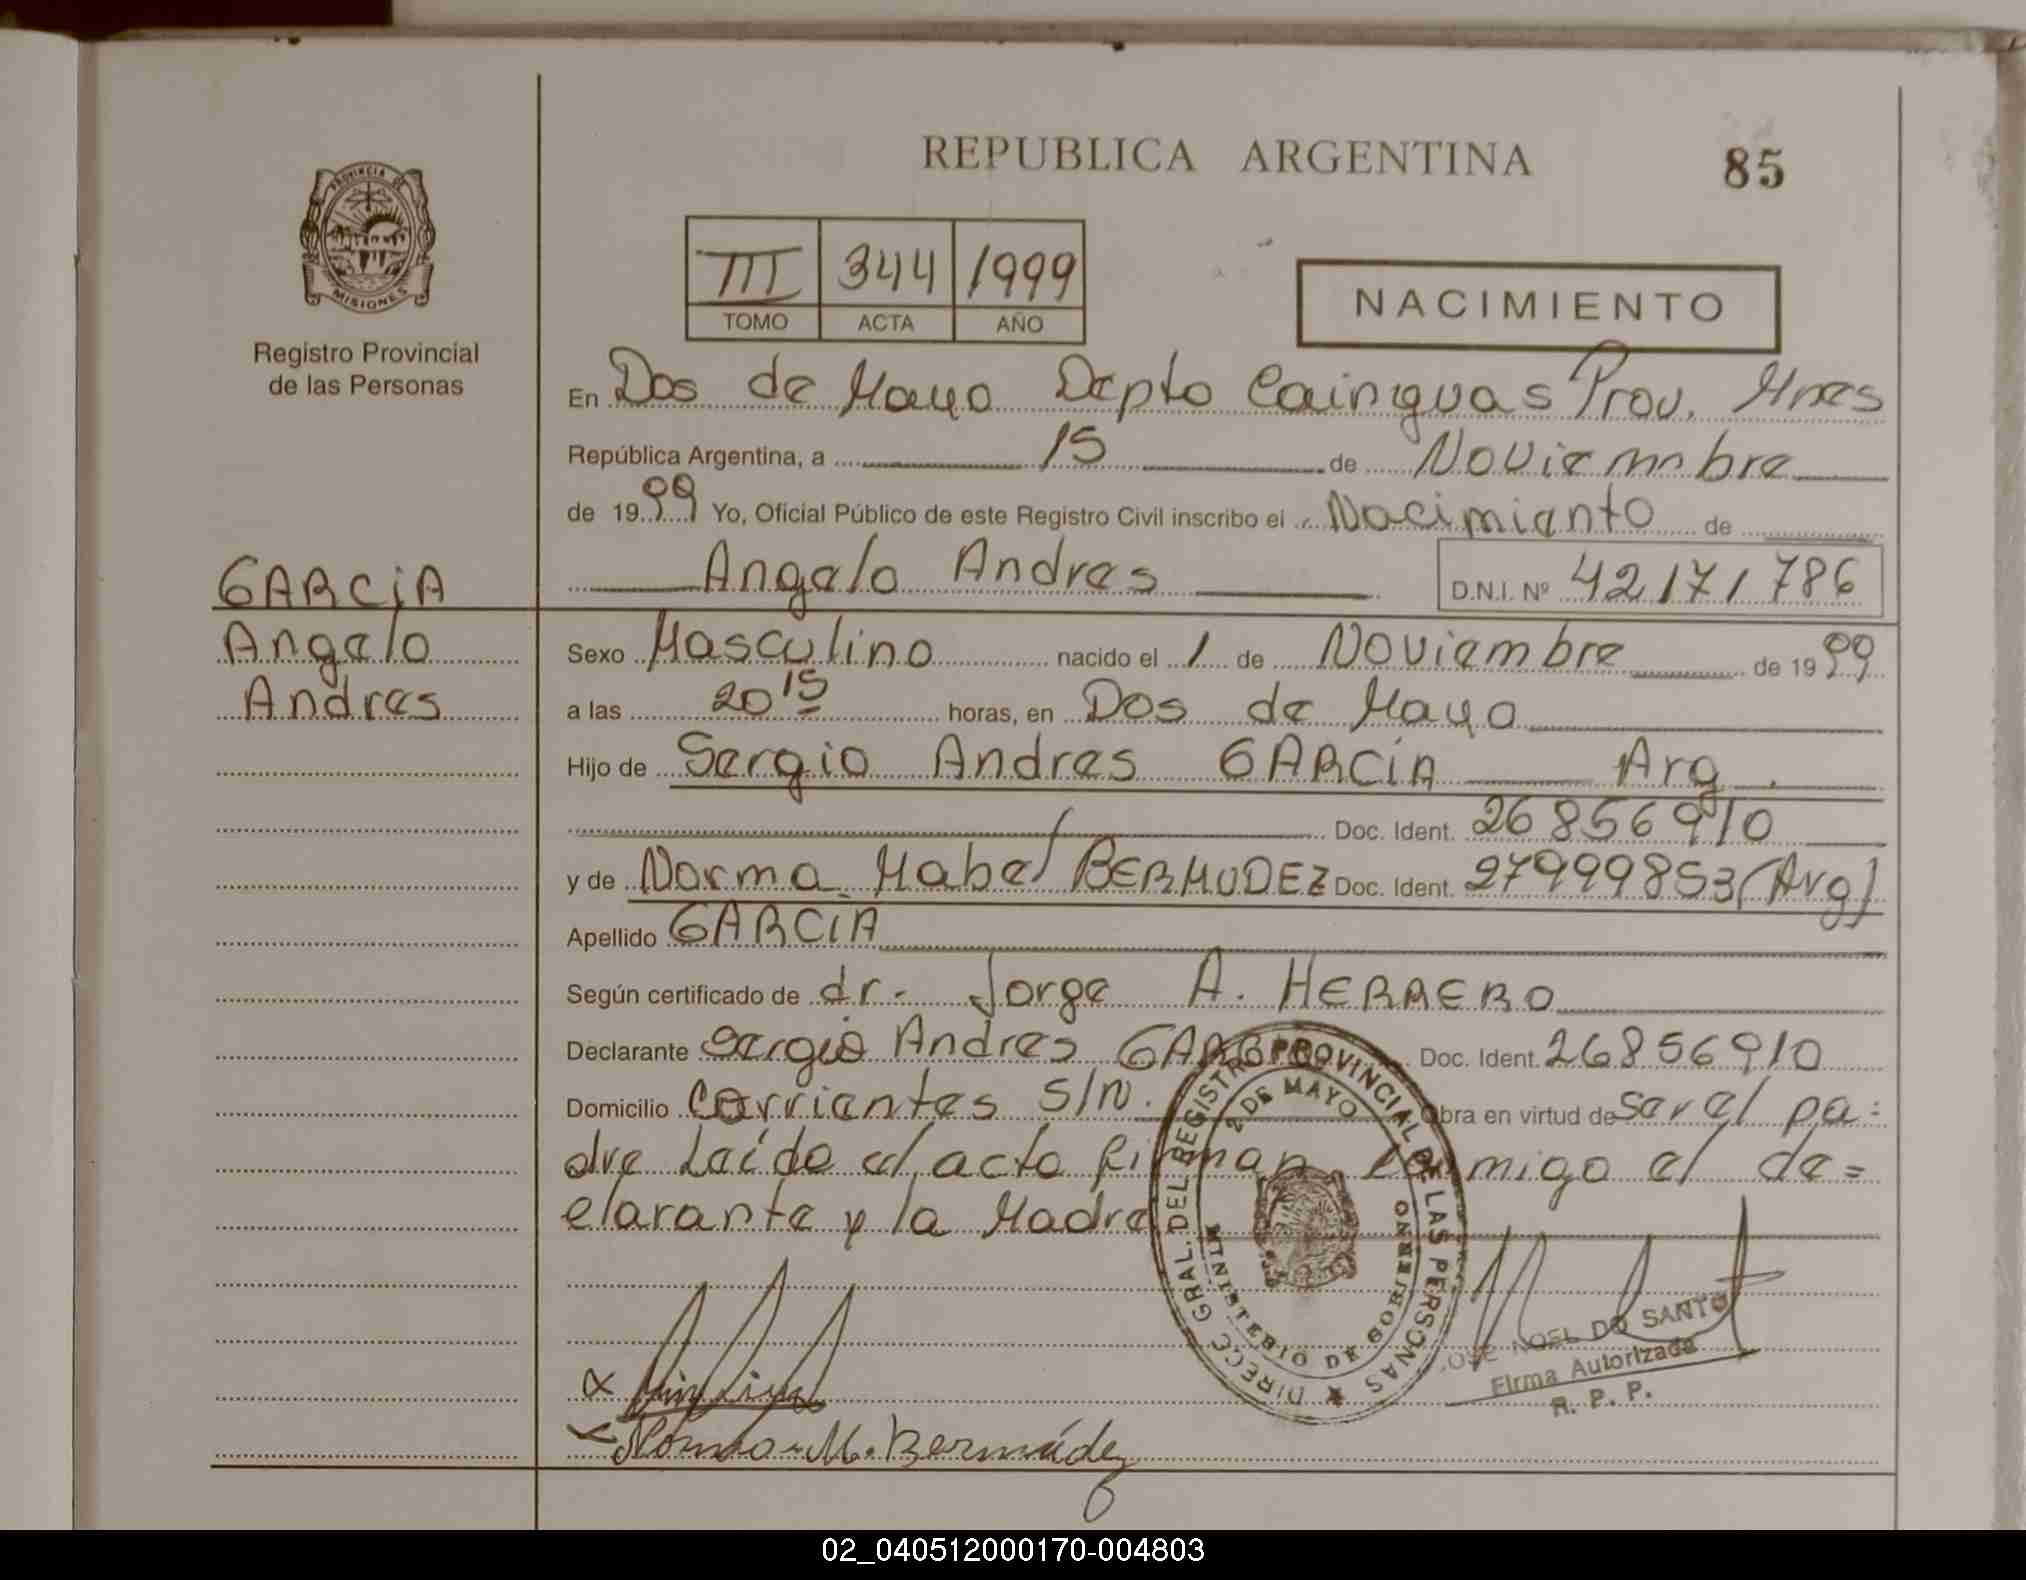 REPUBLICA ARGENTINA
85
PROVINCIA DE
MISIONES
Registro Provincial
de las Personas
III 344 1999
TOMO ACTA AÑO
NACIMIENTO
En Dos de Mayo Depto Cainguas Prov. Mnes
República Argentina, a 15 de Noviembre
de 1999 Yo, Oficial Público de este Registro Civil inscribo el Nacimiento de
Angelo Andres D.N.I. Nº 42171786
GARCIA
Angelo
Andres
Sexo Masculino nacido el 1 de Noviembre de 1999
a las 20 15 horas, en Dos de Mayo
Hijo de Sergio Andres GARCIA Arg.
Doc. Ident. 26856910
y de Norma Mabel BERMUDEZ Doc. Ident. 27999853 (Arg)
Apellido GARCIA
Según certificado de dr. Jorge A. HERRERO
Declarante Sergio Andres GARCIA Doc. Ident. 26856910
Domicilio Corrientes S/N. Obra en virtud de ser el pa=
dre Leído el acto firman conmigo el de=
clarante y la Madre
DIRECC GRAL. DEL REGISTRO PROVINCIAL DE LAS PERSONAS
2 DE MAYO
MINISTERIO DE GOBIERNO
JOSE NOEL DO SANTO
Firma Autorizada
R. P. P.
Norma M. Bermúdez
02_040512000170-004803